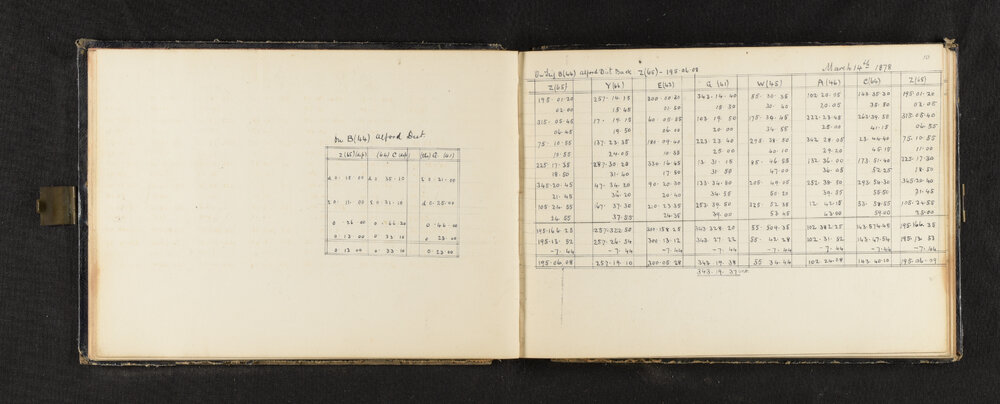 In B(44) Alford Dist
Z(65)(up) (44) C (up) (Ch) G (41)
d 0. 15. 00 d 0. 35. 10 E 0. 21. 00
E 0. 11. 00 E 0. 31. 10 d 0. 25. 00
0. 26. 00 0. 66. 20 0. 46. 00
0 13. 00 0. 33. 10 0 23. 00
0 13 00 0. 33. 10 0. 23. 00
B(44) Alford Dist Back Z(65) - 195.06.08 March 14th 1878
Z(65) Y(46) E(43) G (41) W(45) A(46) C(44) Z(65)
195. 01. 20 257. 14. 15 300. 00. 20 343. 14. 40 55. 30. 35 102. 20. 05 143. 35. 30 195. 01. 20
02. 00 15. 45 01. 50 15. 50 30. 40 20. 05 35. 50 02. 05
315. 05. 45 17. 19. 15 60. 05. 55 103. 19. 50 175. 34. 45 222. 23. 45 263. 39. 50 315. 05. 40
06. 45 19. 50 06. 00 20. 00 34. 55 25. 00 41. 15 06. 55
75. 10. 55 137. 23. 35 180. 09. 40 223. 23. 40 295. 38. 50 342. 28. 05 23. 44. 40 75. 10. 55
10. 55 24. 05 10. 55 25. 00 40. 10 29. 20 45. 15 11. 00
225. 17. 35 287. 30. 20 330. 16. 45 13. 31. 15 85. 46. 55 132. 36. 00 173. 51. 40 225. 17. 30
18. 50 31. 40 17. 50 31. 50 47. 00 36. 05 52. 25 18. 50
345. 20. 45 47. 34. 20 90. 20. 30 133. 34. 50 205. 49. 05 252. 38. 50 293. 54. 30 345. 20. 40
21. 45 34. 20 20. 40 34. 55 50. 20 55. 50 21. 45
105. 24. 55 47. 37. 30 210. 23. 35 253. 39. 50 325. 52. 35 12. 42. 15 53. 58. 55 105. 24. 55
24. 55 37. 55 24. 35 39. 00 53. 45 43. 00 59. 00 25. 00
195. 166. 25 257. 322. 50 300. 158. 25 343. 328. 20 55. 509. 35 102. 382. 25 143. 574. 45 195. 166. 35
195. 13. 52 257. 26. 54 300. 13. 12 343. 27. 22 55. 42. 28 102. 31. 52 143. 47. 54 195. 13. 53
-7. 44 -7. 44 -7. 44 -7. 44 -7. 44 -7. 44 -7. 44 -7. 44
195. 06. 08 257. 19. 10 300. 05. 28 343. 19. 38 55 34. 44 102. 24. 08 143. 40. 10 195. 06. 09
343. 19. 37